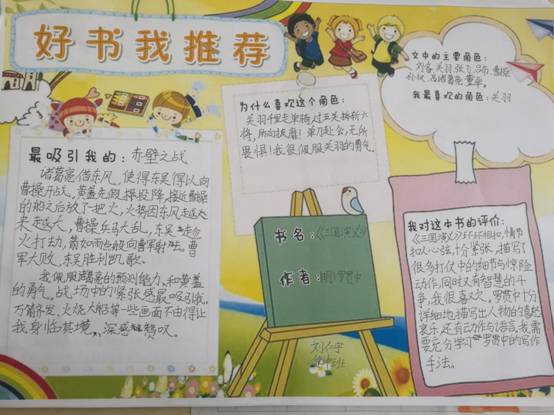 好书我推荐
文中的主要角色:
刘备、关羽、张飞、吕布、曹操
孙权、诸葛亮、董卓。
我最喜欢的角色:关羽
为什么喜欢这个角色:
关羽千里走单骑,过五关斩六
将,所向披靡!单刀赴会,无所
畏惧!我很佩服关羽的勇气。
最吸引我的:赤壁之战
诸葛亮借东风,使得东吴得以向
曹操开战。黄盖先假装投降,接近曹操
的船之后放了把火,火势因东风
越大,曹操兵马大乱,东吴
火打劫,箭如雨点般向曹军射去。曹
军大败,东吴胜利凯歌。
我佩服诸葛亮的预测能力,和黄盖
的勇气。战场中的紧张感最吸引我,
万箭齐发、火烧大船等一些画面不由得让
我身临其境,深感赞叹。
书名:《三国演义》
作者:明)罗贯中
刘仁宇
我对这本书的评价:
《三国演义》环环相扣,情节
扣人心弦,十分紧张,描写了
很多打仗中的细节与惊险
动作,同时又有智慧的斗
争,我很喜欢。罗贯中十分
详细地描写出人物的喜怒
哀乐,还有动作与语言,我需
要充分学习罗贯中的写作
手法。